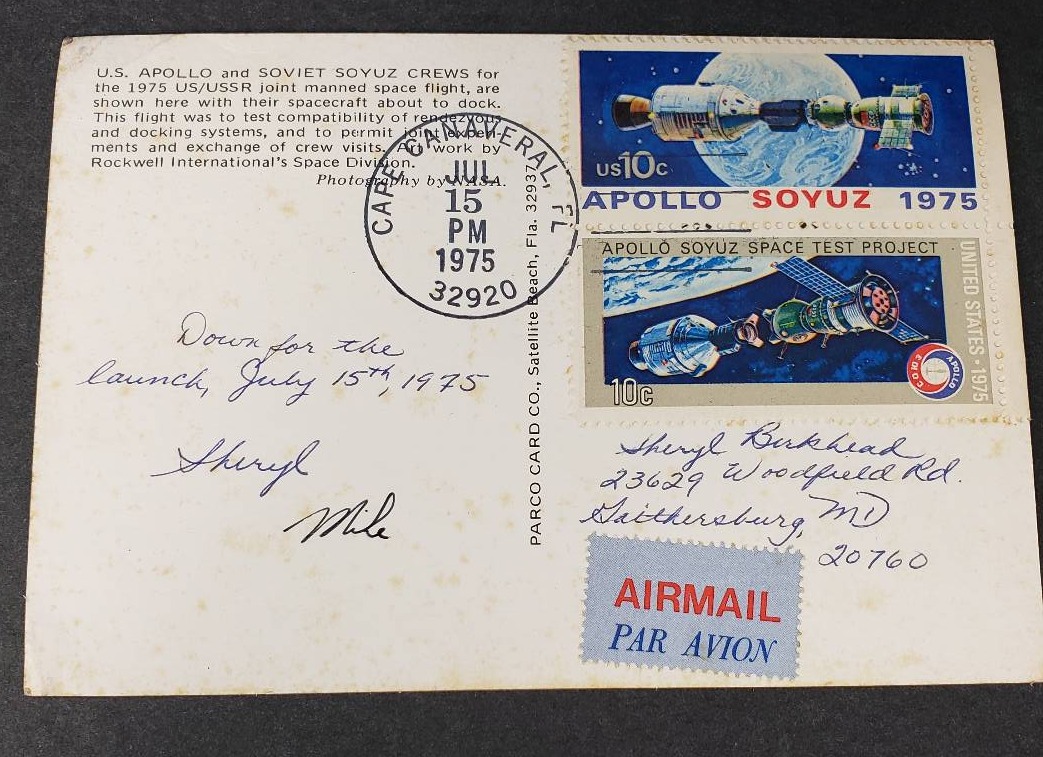 U.S. APOLLO and SOVIET SOYUZ CREWS for
the 1975 US/USSR joint manned space flight, are
shown here with their spacecraft about to dock.
This flight was to test compatibility of rendezvous
and docking systems, and to permit joint experi-
ments and exchange of crew visits. Art work by
Rockwell International's Space Division.
Photography by NASA.
CAPE CANAVERAL, FL
JUL
15
PM
1975
32920
Down for the
launch, July 15th, 1975
Sheryl
Mike
PARCO CARD CO., Satellite Beach, Fla. 32937
US10c
APOLLO SOYUZ 1975
APOLLO SOYUZ SPACE TEST PROJECT
UNITED STATES · 1975
10c
APOLLO
СОЮЗ
Sheryl Birkhead
23629 Woodfield Rd.
Gaithersburg, MD
20760
AIRMAIL
PAR AVION